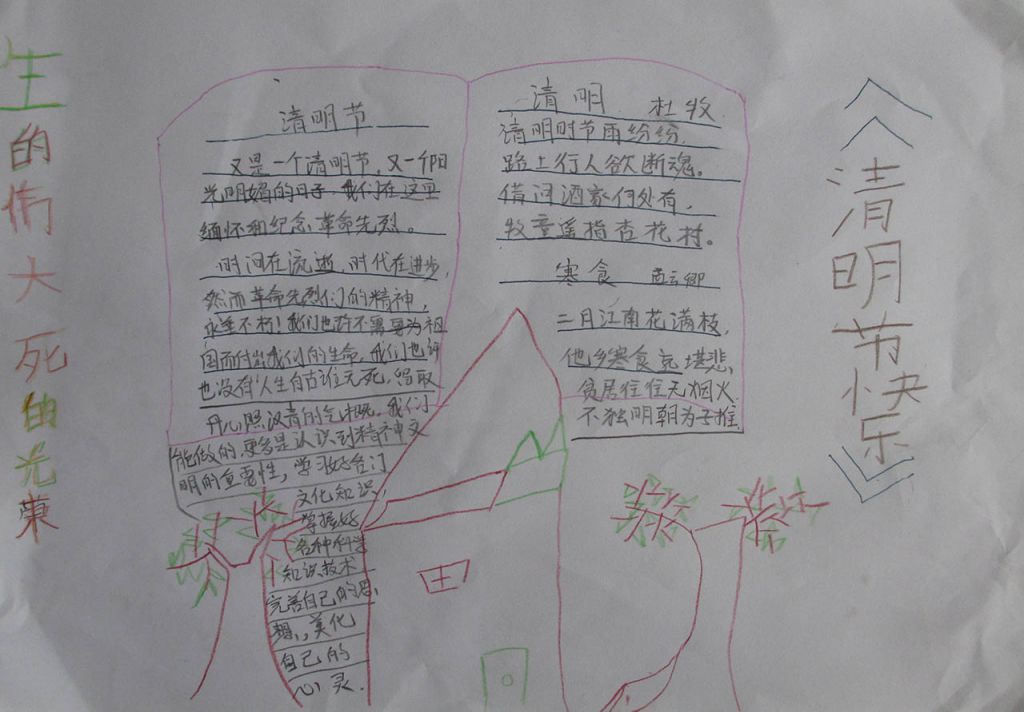 生的伟大 死的光荣
清明节
又是一个清明节，又一个阳
光明媚的日子 我们在这里
缅怀和纪念革命先烈。
时间在流逝，时代在进步，
然而革命先烈们的精神，
永垂不朽！我们也许不需要为祖
国而付出我们的生命，我们也许
也没有人生自古谁无死，留取
丹心照汉青的气概，我们
能做的，更多是认识到精神文
明的重要性，学习好各门
文化知识，
掌握好
各种科学
知识技术
完善自己的思
想，，美化
自己的
心灵．
清明 杜牧
清明时节雨纷纷，
路上行人欲断魂。
借问酒家何处有，
牧童遥指杏花村。
寒食 孟云卿
二月江南花满枝，
他乡寒食远堪悲，
贫居往往无烟火
不独明朝为子推
《清明节快乐》